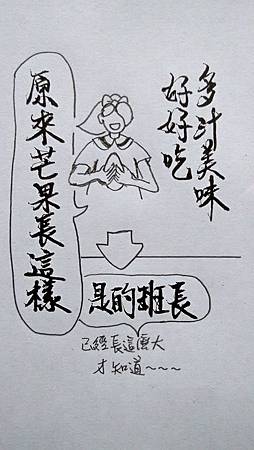 多汁美味
好好吃
原來芒果長這樣
是的班長
已經長這麼大
才知道~~~